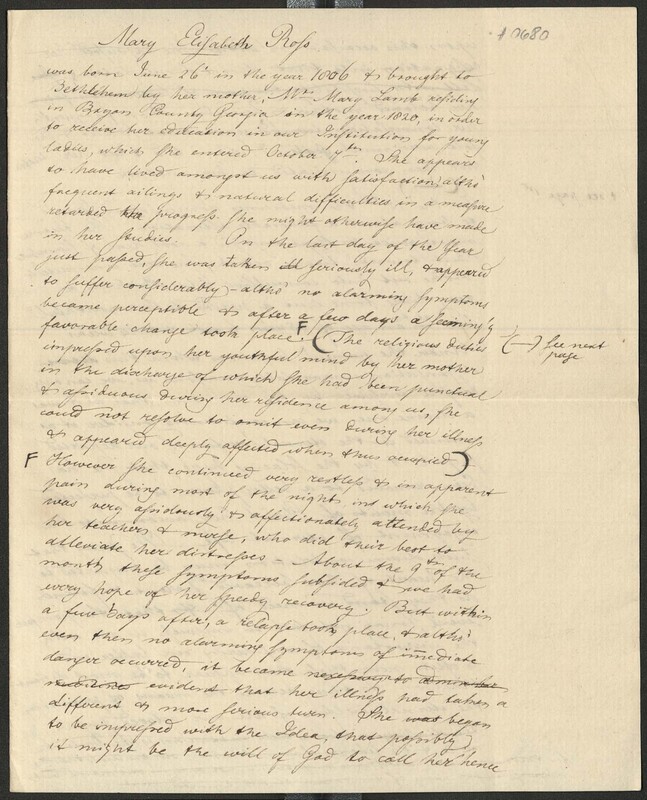 10680
Mary Elisabeth Ross.
was born June 26th in the year 1806 & brought to
Bethlehem by her mother, Mrs Mary Lamb residing
in Bryan County Georgia in the year 1820, in order
to receive her Education in our Institution for young
ladies, which she entered October 7th. She appears
to have lived amongst us with satisfaction, altho'
frequent ailings & natural difficulties in a measure
retarded the progress she might otherwise have made
in her studies. On the last day of the Year
just passed, she was taken ill seriously ill, & appeared
to suffer considerably – altho' no alarming symptoms
became perceptible & after a few days a seemingly
favorable change took place. F (The religious duties
(—) See next
page
impressed upon her youthful mind by her mother
in the discharge of which she had been punctual
& assiduous during her residence among us, she
could not resolve to omit even during her illness
& appeared deeply affected when thus occupied)
F However she continued very restless & in apparent
pain during most of the nights in which she
was very assidously & affectionately attended by
her teachers & nurse, who did their best to
alleviate her distresses – About the 9th of the
month these symptoms subsided & we had
every hope of her speedy recovery. But within
a few days after, a relapse took place, & altho'
even then no alarming symptoms of immediate
danger occurred, it became necessary to administer
medicines evident that her illness had taken a
different & more serious turn. She was began
to be impressed with the Idea, that possibly
it might be the will of God to call her hence